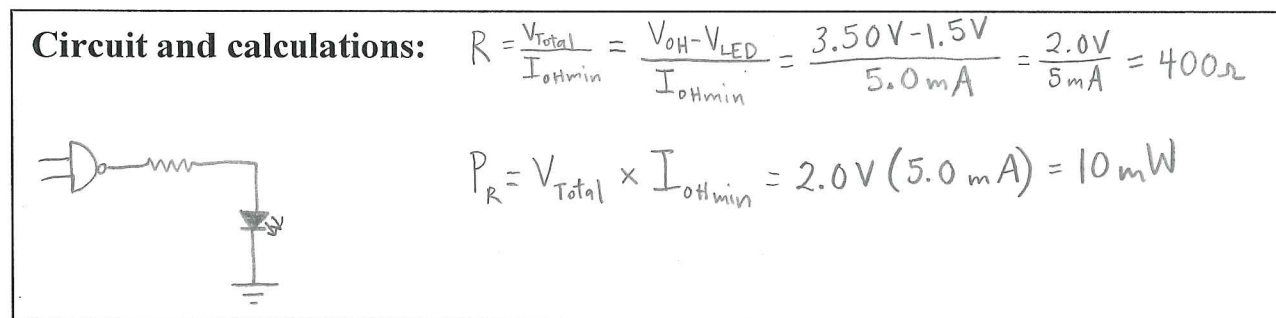 Circuit and calculations: R = V_Total / I_OHmin = (V_OH - V_LED) / I_OHmin = (3.50V - 1.5V) / 5.0mA = 2.0V / 5mA = 400Ω
P_R = V_Total × I_OHmin = 2.0V (5.0mA) = 10mW